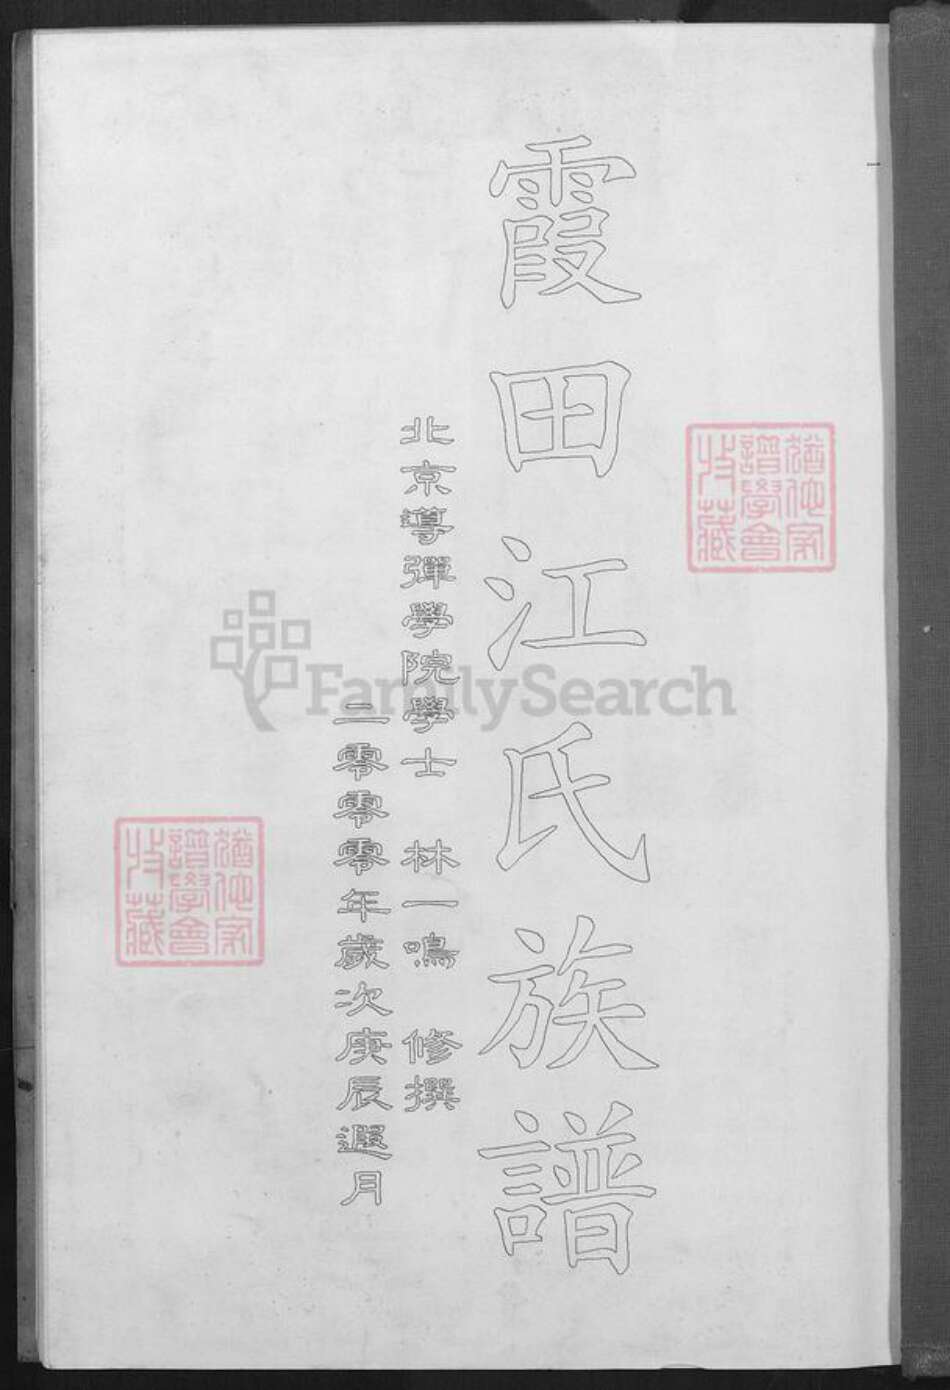 霞田江氏族譜
北京導彈學院學士 林一鳴 修撰
二零零零年歲次庚辰遐月
猶他家
譜學會
收藏
猶他家
譜學會
收藏
FamilySearch